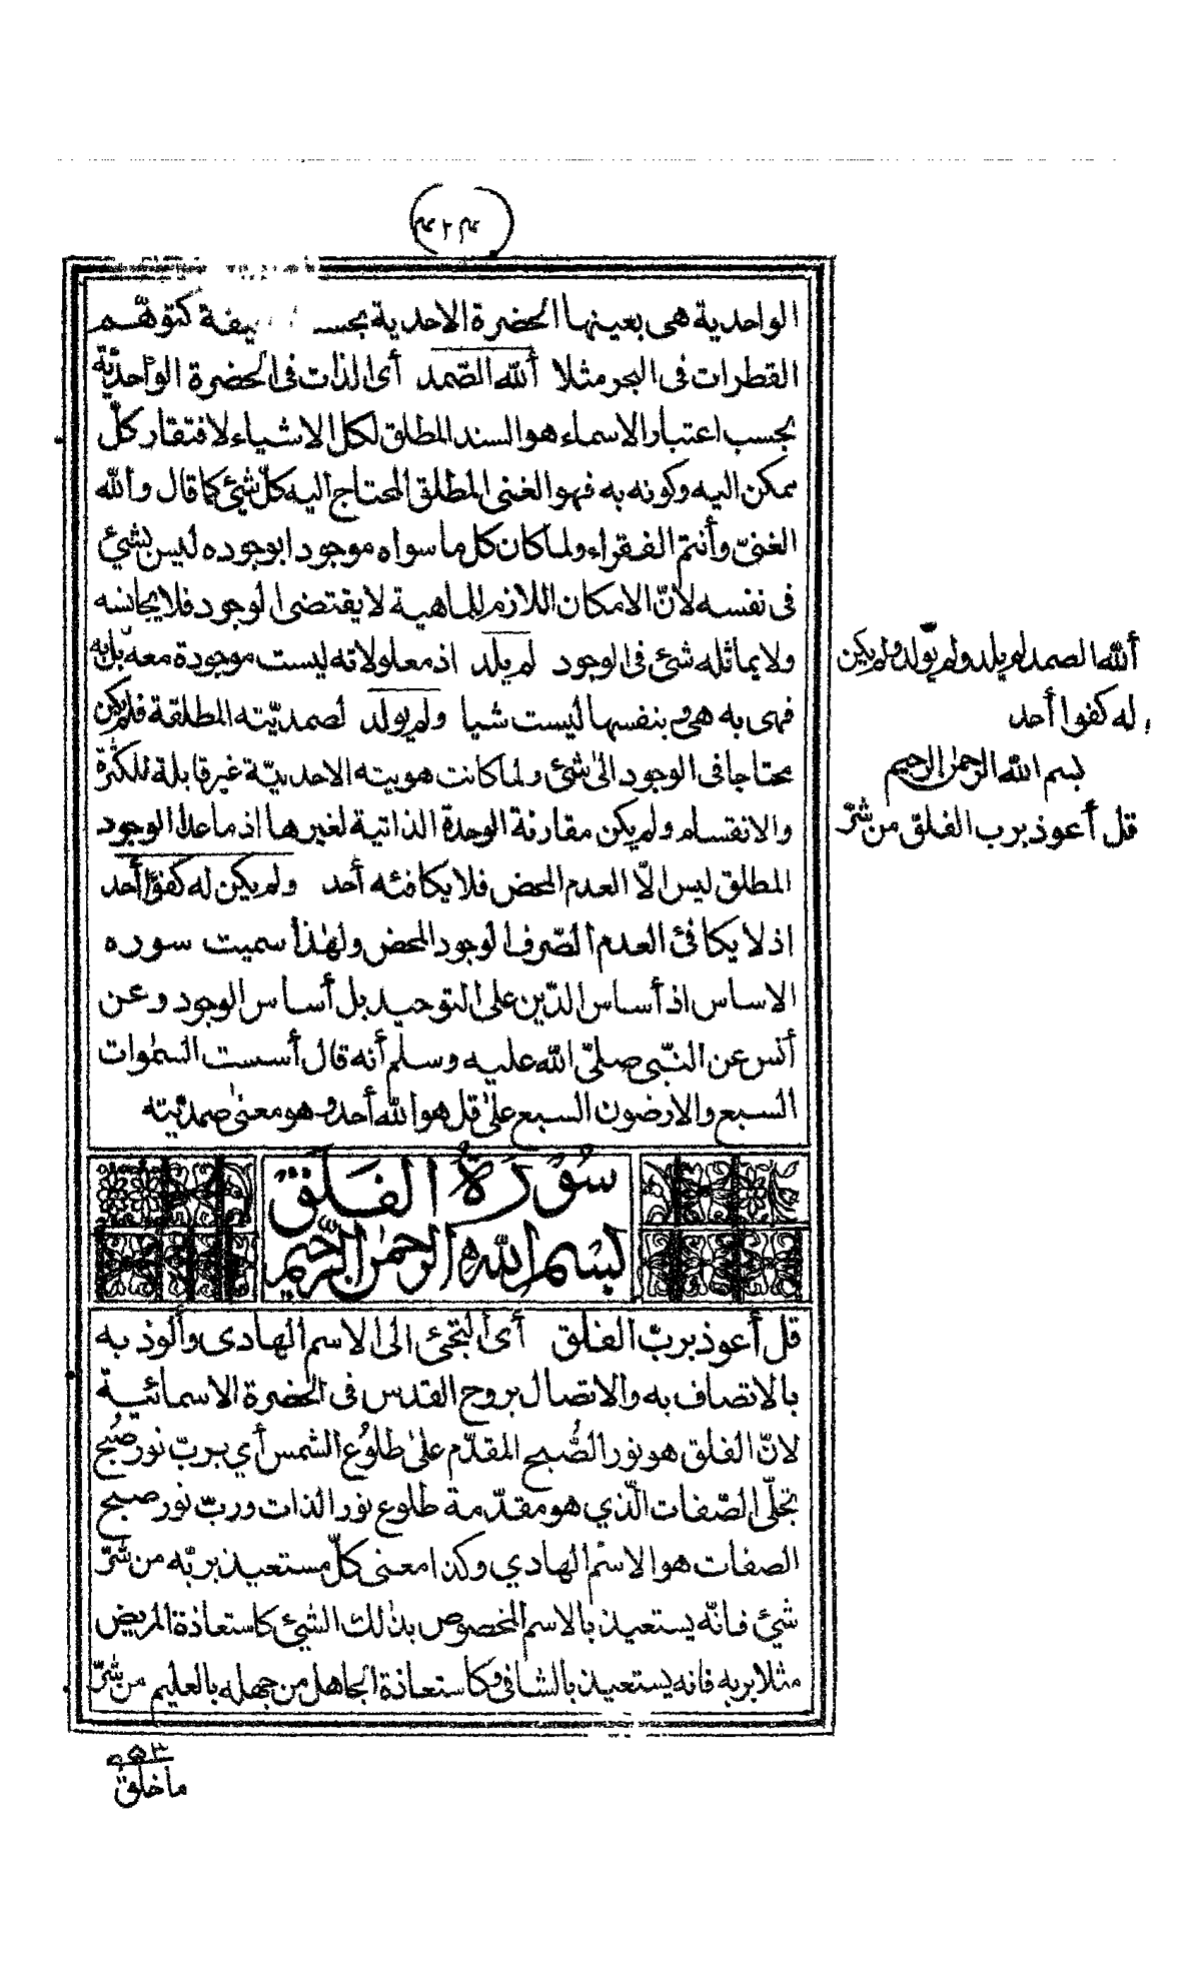 الواحدية هى بعينها الحضرة الاحدية بحسب كتوهّم
القطرات فى البحر مثلا أللّه الصّمد أى الذات فى الحضرة الواحديّة
بحسب اعتبار الاسماء هو السند المطلق لكل الاشياء لافتقار كلّ
ممكن اليه وكونه به فهو الغنى المطلق المحتاج اليه كلّ شئ كما قال وأللّه
الغنىّ وأنتم الفقراء ولما كان كل ما سواه موجودا بوجوده ليس بشئ
فى نفسه لانّ الامكان اللازم للماهية لا يقتضى الوجود فلا يجانسه
ولا يماثله شئ فى الوجود لم يلد اذ معلولاته ليست موجودة معه بل به
فهى به هى وبنفسها ليست شيا ولم يولد لصمديّته المطلقة فلم يكن
محتاجا فى الوجود الى شئ ولما كانت هويته الاحديّة غير قابلة للكثرة
والانقسام ولم يكن مقارنة الوحدة الذاتية لغيرها اذ ما عدا الوجود
المطلق ليس الّا العدم المحض فلا يكافئه أحد ولم يكن له كفوًا أحد
اذ لا يكافئ العدم الصّرف الوجود المحض ولهذا سميت سوره
الاساس اذ أساس الدّين على التوحيد بل أساس الوجود وعن
أنس عن النبّى صلىّ اللّه عليه وسلم أنه قال أسست السموات
السبع والارضون السبع على قل هو اللّه أحد وهو معنى صمديّته
سُوْرَةُ الفَلَق
بسم اللّه الرحمن الرّحيم
قل أعوذ بربّ الفلق أى ألتجئ الى الاسم الهادى وألوذ به
بالاتصاف به والاتصال بروح القدس فى الحضرة الاسمائية
لانّ الفلق هو نور الصُّبح المقدّم على طلوُع الشمس أي بربّ نور صُبح
تجلّى الصّفات الّذي هو مقدّمة طلوع نور الذات وربّ نور صبح
الصفات هو الاسْم الهادي وكذا معنى كلّ مستعيذ بربّه من شرّ
شئ فانّه يستعيذ بالاسم المخصوص بذلك الشئ كاستعاذة المريض
مثلا بربه فانه يستعيذ بالشافى وكاستعاذة الجاهل من جهله بالعليم من شرّ
ما خلق
أللّه الصمد لم يلد ولم يولد ولم يكن
له كفوا أحد
بسم اللّه الرحمن الرحيم
قل أعوذ برب الفلق من شرّ